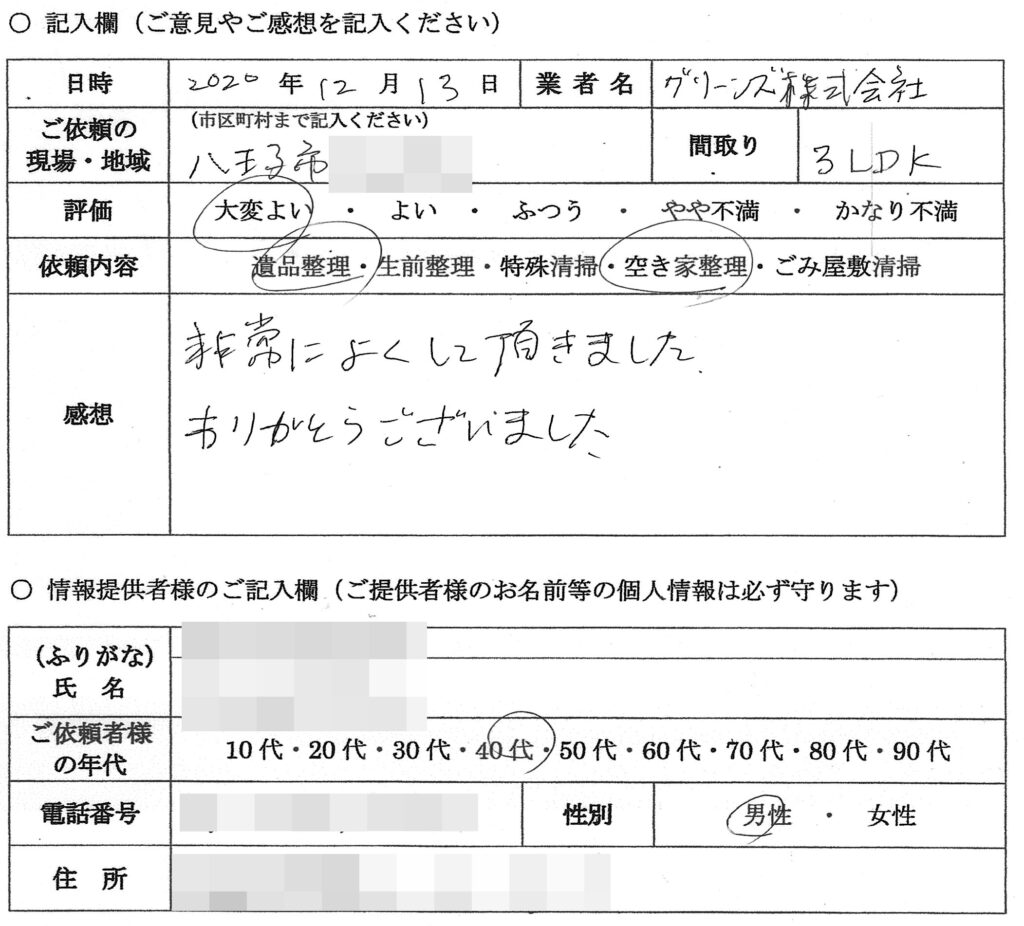 ○ 記入欄（ご意見やご感想を記入ください）
日時 2020 年 12 月 13 日 業者名 グリーンズ株式会社
ご依頼の現場・地域 （市区町村まで記入ください） 八王子市 間取り 3LDK
評価 大変よい ・ よい ・ ふつう ・ やや不満 ・ かなり不満
依頼内容 遺品整理・生前整理・特殊清掃・空き家整理・ごみ屋敷清掃
感想
非常によくして頂きました.
ありがとうございました
○ 情報提供者様のご記入欄（ご提供者様のお名前等の個人情報は必ず守ります）
（ふりがな）
氏 名
ご依頼者様の年代 10代・20代・30代・40代・50代・60代・70代・80代・90代
電話番号 性別 男性 ・ 女性
住 所